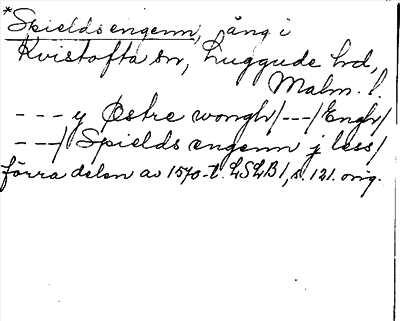 *Skieldsengenn, äng i
Kvistofta sn, Luggude hd,
Malm. l.
--- y Østre wongh/---/Engh/
---/ Spields engenn j less/
förra delen av 1570-t. LSLB 1, s. 121. orig.